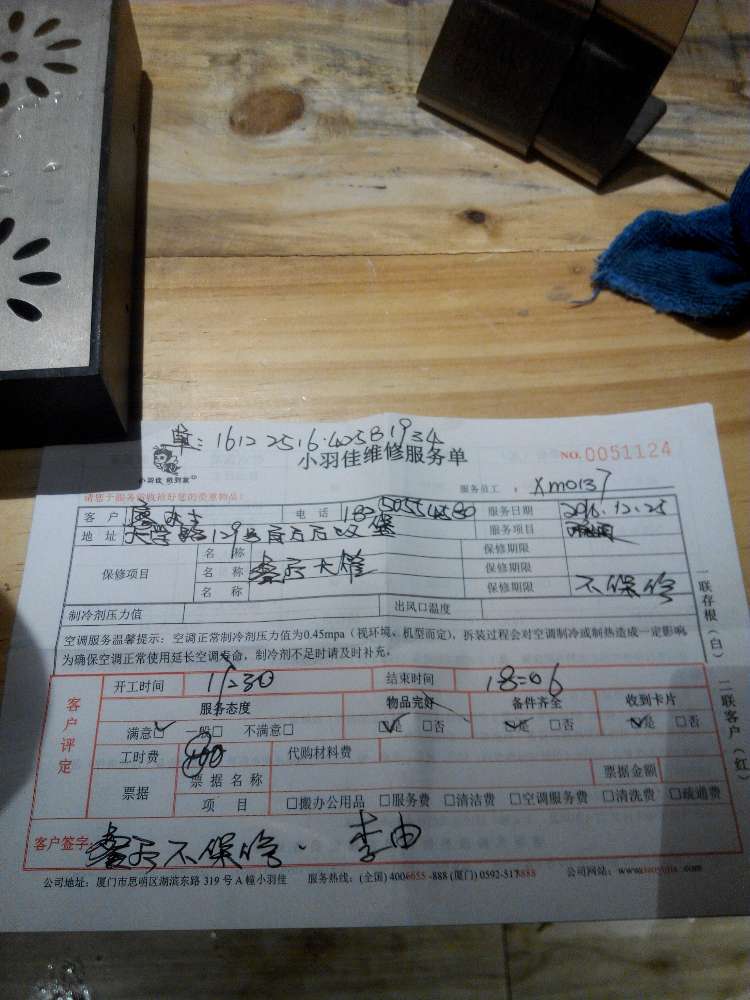 单: 1612 2516.425B1934
小羽佳 收到家
小羽佳维修服务单
NO.0051124
服务员工: Xm0137
请您于服务前收拾好您的贵重物品!
客户 电话 服务日期 2016.12.25
地址 大学路129号 服务项目
保修项目 名称 保修期限
名称 保修期限
名称 保修期限 不保修
制冷剂压力值 出风口温度
空调服务温馨提示: 空调正常制冷剂压力值为0.45mpa (视环境、机型而定), 拆装过程会对空调制冷或制热造成一定影响,
为确保空调正常使用延长空调寿命, 制冷剂不足时请及时补充。
一联存根(白) 二联客户(红)
客户评定
开工时间 17=30 结束时间 18=06
服务态度 物品完好 备件齐全 收到卡片
满意☑ 一般□ 不满意□ ☑是 □否 ☑是 □否 ☑是 □否
工时费 100 代购材料费
票据 票据名称 票据金额
项目 □搬办公用品 □服务费 □清洁费 □空调服务费 □清洗费 □疏通费
客户签字: 不保修. 李由
公司地址: 厦门市思明区湖滨东路 319 号 A 幢小羽佳 服务热线: (全国) 4006655 -888 (厦门) 0592-5178888 公司网站: